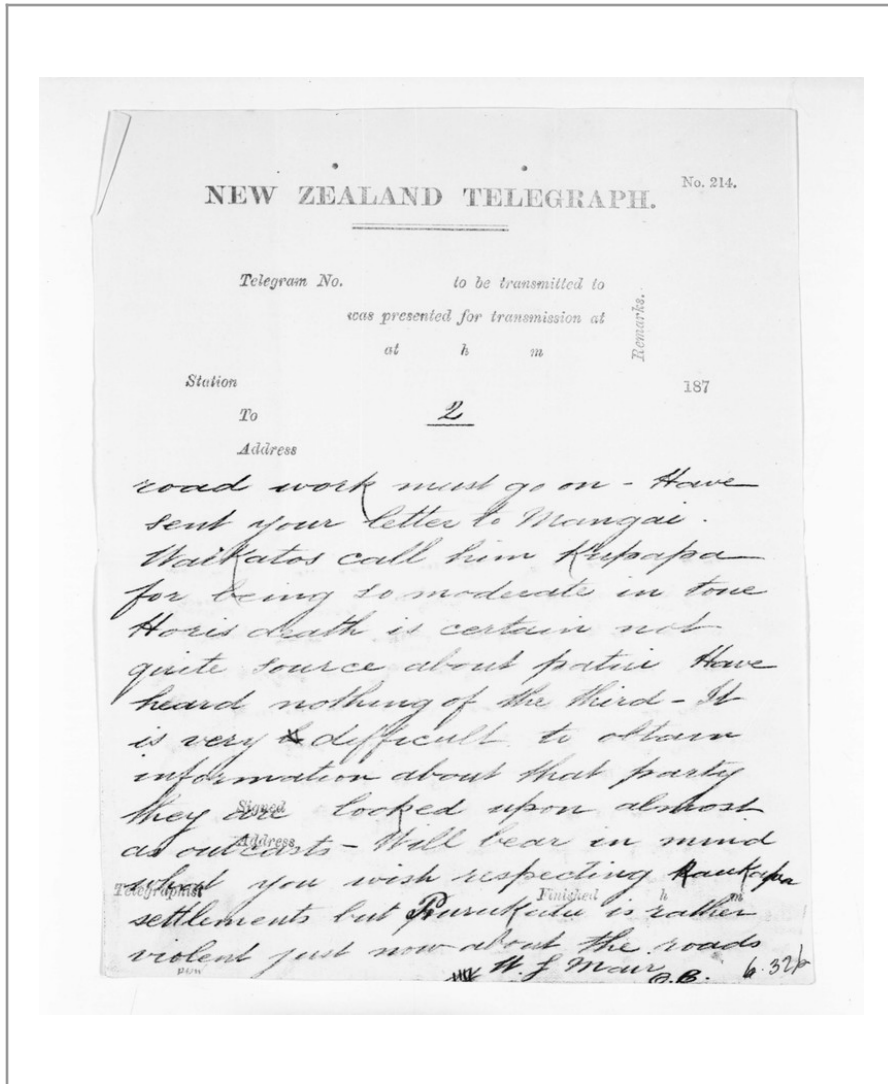 NEW ZEALAND TELEGRAPH.
No. 214.
Telegram No. to be transmitted to
was presented for transmission at
at h m
Remarks.
Station 187
To 2
Address
road work must go on - Have
sent your letter to Mangai.
Waikatos call him Kupapa
for being so moderate in tone
Horis death is certain not
quite source about patiri Have
heard nothing of the third - It
is very difficult to obtain
information about that party
they are looked upon almost
Signed
as outcasts - Will bear in mind
Address
what you wish respecting Kaukapa
Telegraphist Finished h m
settlements but Purukutu is rather
violent just now about the roads
W G Mair
6.32p